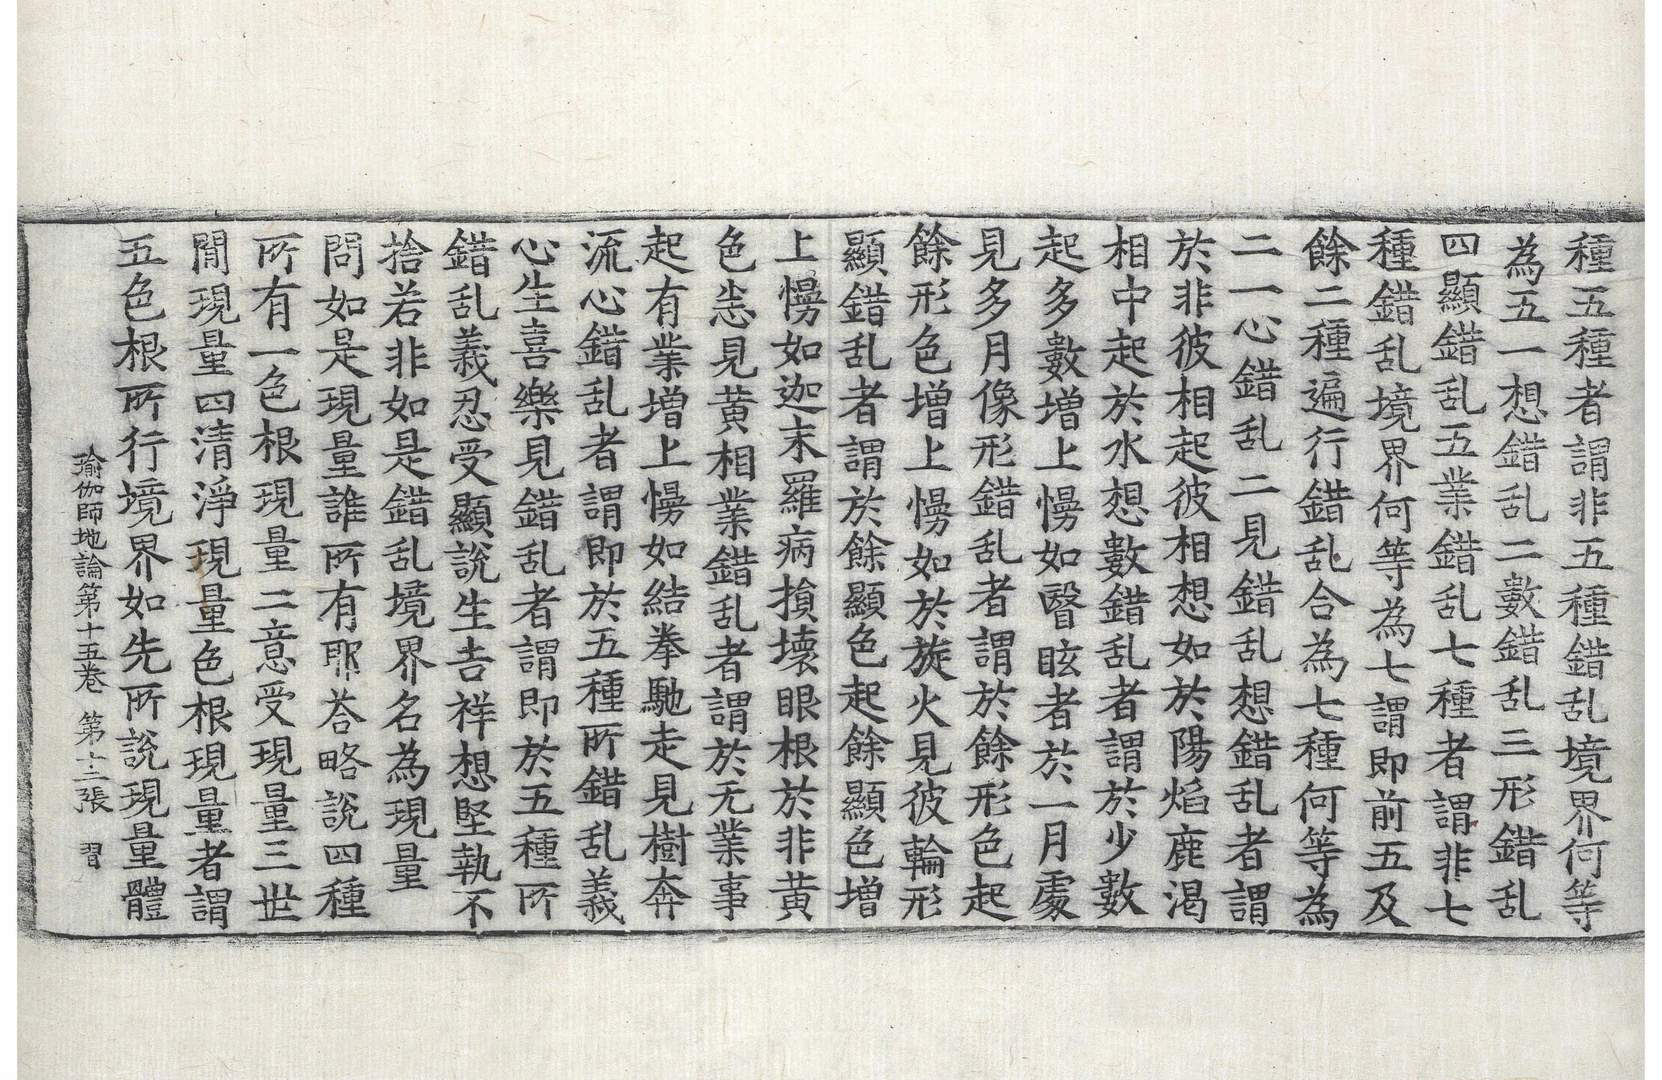 種五種者謂非五種錯乱境界何等
為五一想錯乱二數錯乱三形錯乱
四顯錯乱五業錯乱七種者謂非七
種錯乱境界何等為七謂即前五及
餘二種遍行錯乱合為七種何等為
二一心錯乱二見錯乱想錯乱者謂
於非彼相起彼相想如於陽焰鹿渴
相中起於水想數錯乱者謂於少數
起多數增上慢如瞖眩者於一月處
見多月像形錯乱者謂於餘形色起
餘形色增上慢如於旋火見彼輪形
顯錯乱者謂於餘顯色起餘顯色增
上慢如迦末羅病損壞眼根於非黃
色恙見黃相業錯乱者謂於无業事
起有業增上慢如結拳馳走見樹奔
流心錯乱者謂即於五種所錯乱義
心生喜樂見錯乱者謂即於五種所
錯乱義忍受顯說生吉祥想堅執不
捨若非如是錯乱境界名為現量
問如是現量誰所有耶荅略說四種
所有一色根現量二意受現量三世
間現量四清淨現量色根現量者謂
五色根所行境界如先所說現量體
瑜伽師地論第十五卷 第十二張 習